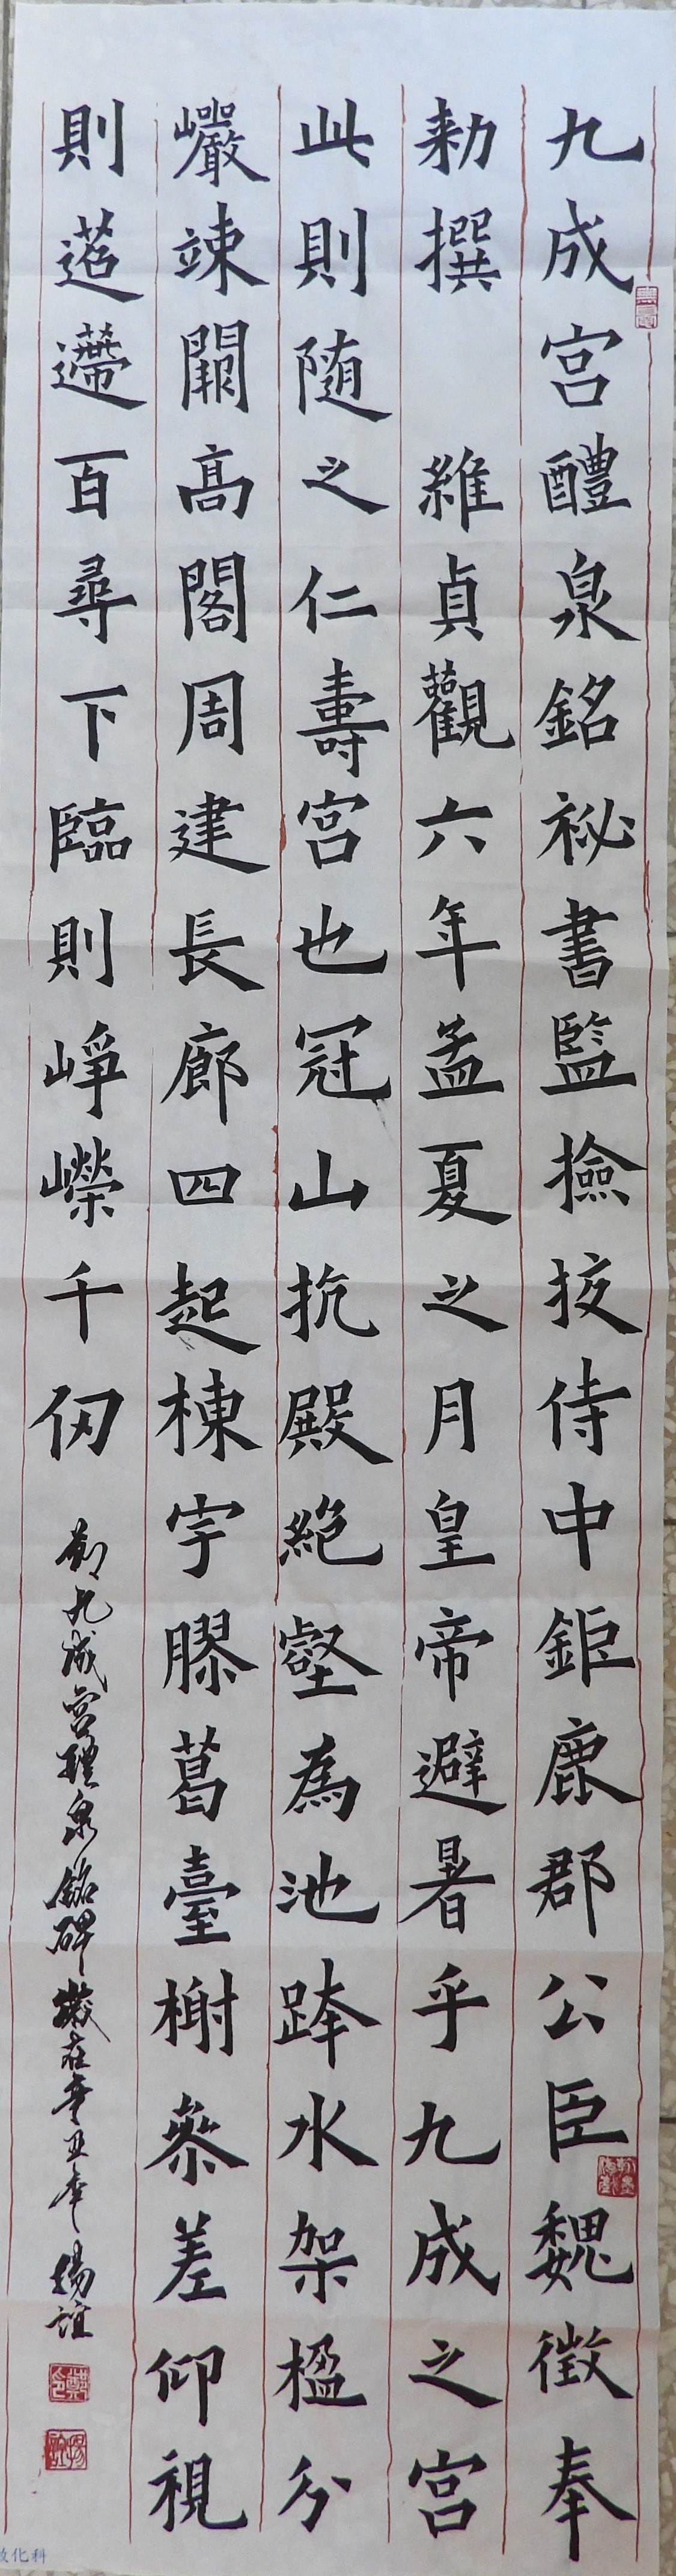 九成宮醴泉銘祕書監撿挍侍中鉅鹿郡公臣魏徵奉
勑撰 維貞觀六年孟夏之月皇帝避暑乎九成之宮
此則随之仁壽宮也冠山抗殿絕壑為池跨水架楹分
巖竦闕高閣周建長廊四起棟宇膠葛臺榭參差仰視
則迢遰百尋下臨則崢嶸千仞
節九成宮醴泉銘碑 歲在辛丑年
化科